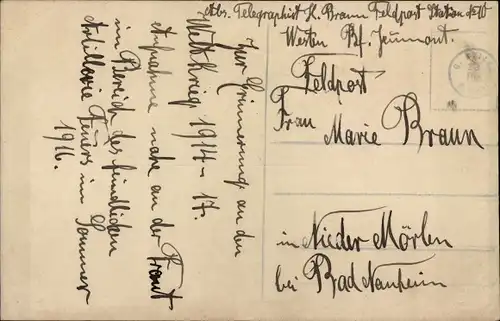 Abs. Telegraphist K. Braun Feldpost Station No 40
Westen Bf. Jeumont.
Feldpost
Frau
Marie Braun
in Nieder Mörlen
bei Bad Nauheim
Zur Erinnerung an den
Weltkrieg 1914-17.
Aufnahme nahe an der Front
im Bereich des feindlichen
Artillerie Feuers im Sommer
1916.